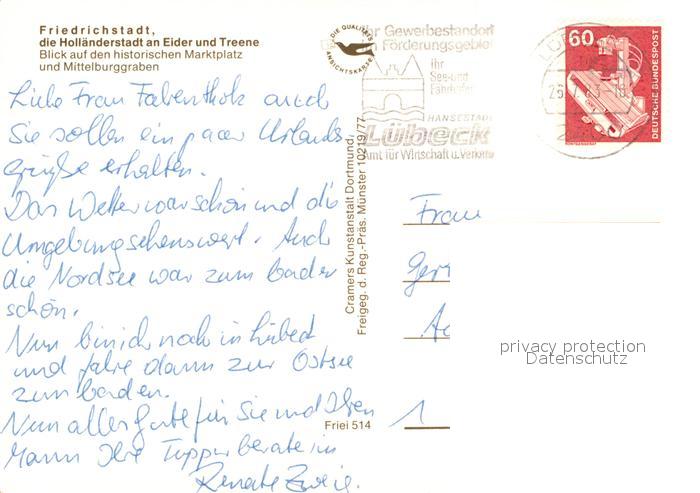 Friedrichstadt,
die Holländerstadt an Eider und Treene
Blick auf den historischen Marktplatz
und Mittelburggraben
Liebe Frau Fabentholz auch
Sie sollen ein paar Urlaubs-
grüße erhalten.
Das Wetter war schön und die
Umgebung sehenswert. Auch
die Nordsee war zum baden
schön.
Nun bin ich noch in Lübeck
und fahre dann zur Ostsee
zum baden.
Nun alles gute für Sie und Ihren
Mann Ihre Tupperberaterin
Renate Zweig.
DIE QUALITÄTS
ANSICHTSKARTE
Cramers Kunstanstalt Dortmund,
Freigeg. d. Reg.-Präs. Münster 10219/77
Friei 514
Gewerbestandort
Förderungsgebiet
Ihr
See-und
Fährhafen
HANSESTADT
Lübeck
Amt für Wirtschaft u. Verkehr
60
DEUTSCHE BUNDESPOST
RÖNTGENGERÄT
Frau
Ger
1
privacy protection
Datenschutz